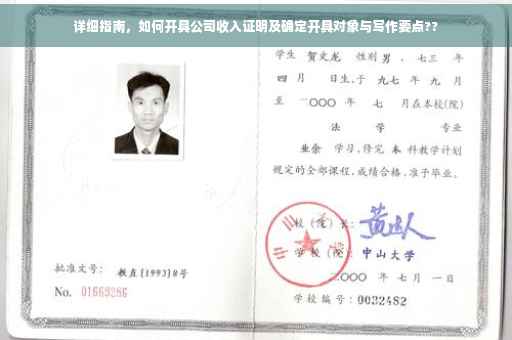 详细指南，如何开具公司收入证明及确定开具对象与写作要点??
学生 贺文龙 性别 男，七三 年
四 月 日生,于 九七 年 九 月
至 二〇〇〇 年 七 月在本校(院)
法 学 专业
业余 学习,修完 本 科教学计划
规定的全部课程,成绩合格,准予毕业。
校 (院) 长:
学 校 (院): 中山大学
二〇〇〇 年 七 月 一 日
学校编号: 0032482
批准文号: 教直[1993]8号
No. 01669286